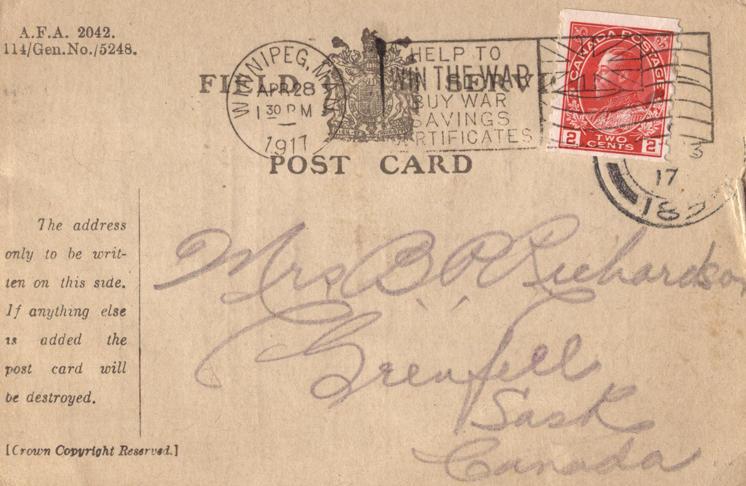 A.F.A. 2042.
114/Gen.No./5248.
WINNIPEG, MAN.
APR 28
1 30 PM
1917
HELP TO
WIN THE WAR
BUY WAR
SAVINGS
CERTIFICATES
FIELD SERVICE
POST CARD
CANADA POSTAGE
2 TWO CENTS 2
3
17
182
The address
only to be writ-
ten on this side.
If anything else
is added the
post card will
be destroyed.
[Crown Copyright Reserved.]
Mrs B R Richardson
Grenfell
Sask
Canada